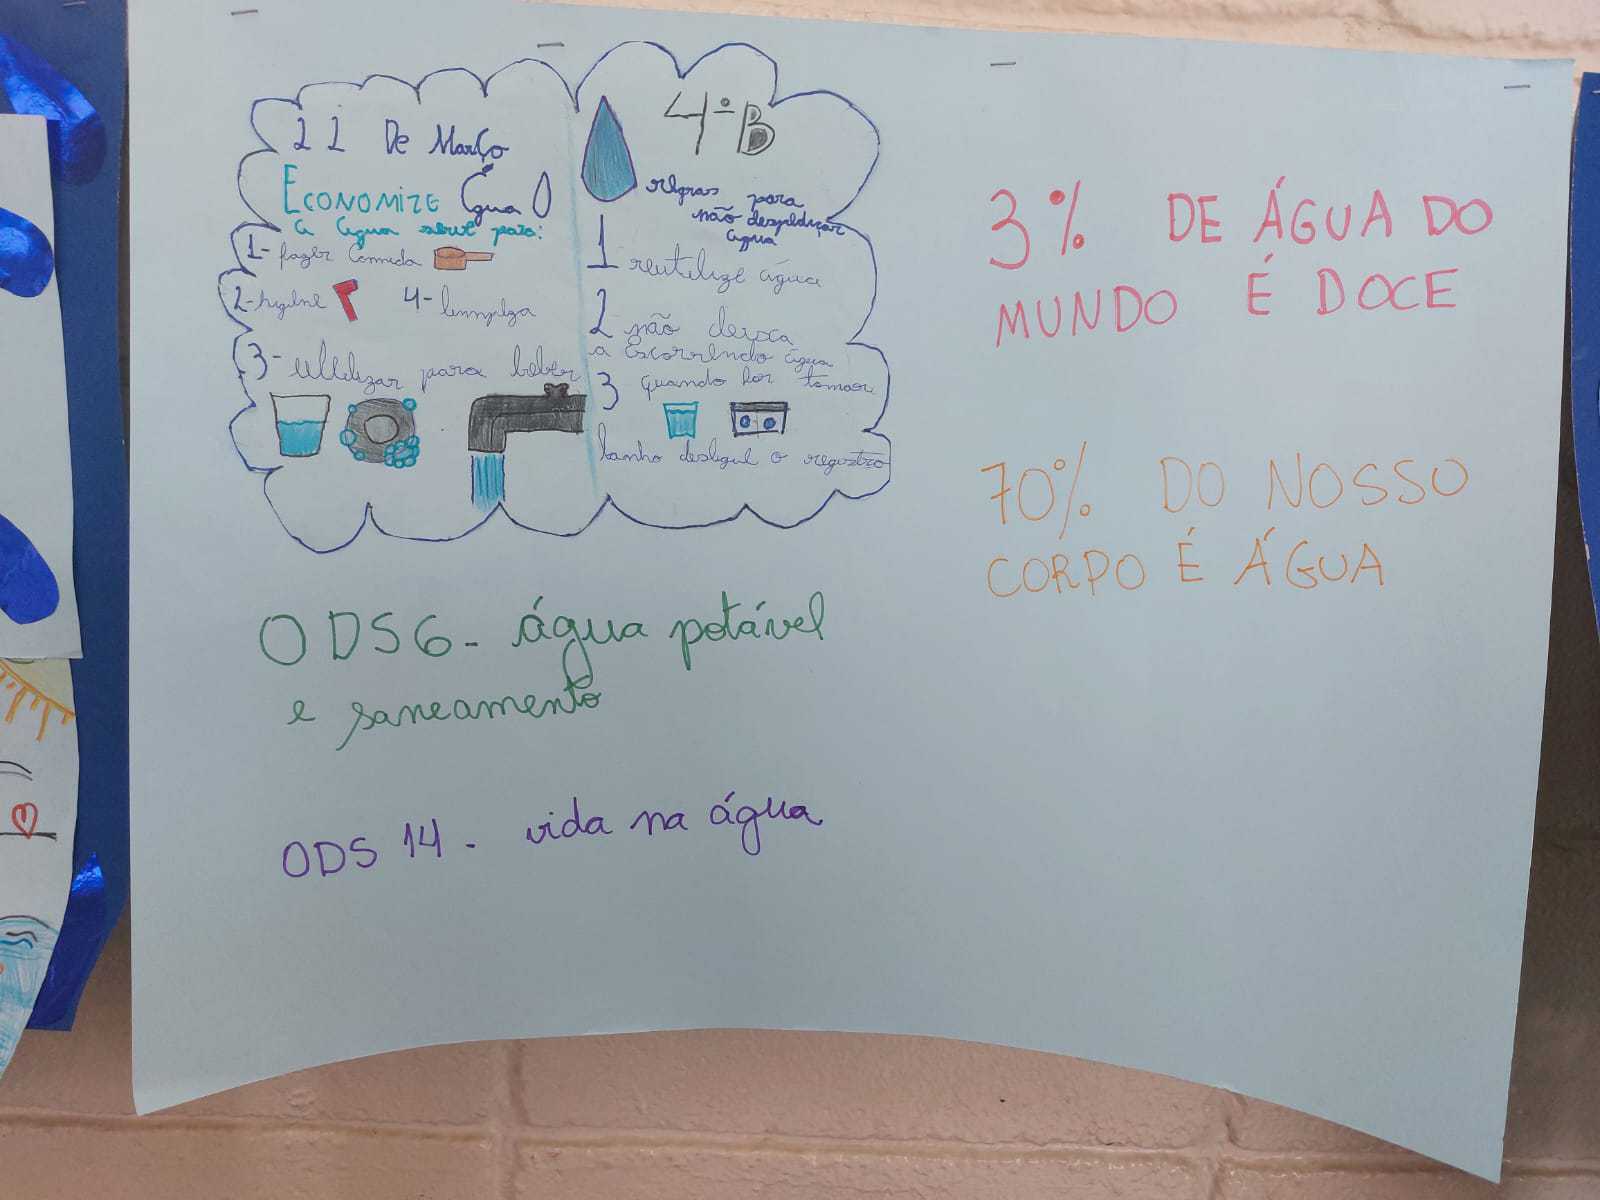 22 De Março
Economize água
a água serve para:
1- fazer comida
2- higiene 4- limmpeza
3- utilizar para beber
4º B
regras para
não desperdiçar
água
1 reutilize água
2 não deixa
a escorrendo água
3 quando for tomar
banho desligue o registro
3% DE ÁGUA DO
MUNDO É DOCE
70% DO NOSSO
CORPO É ÁGUA
ODS6- água potável
e saneamento
ODS 14- vida na água